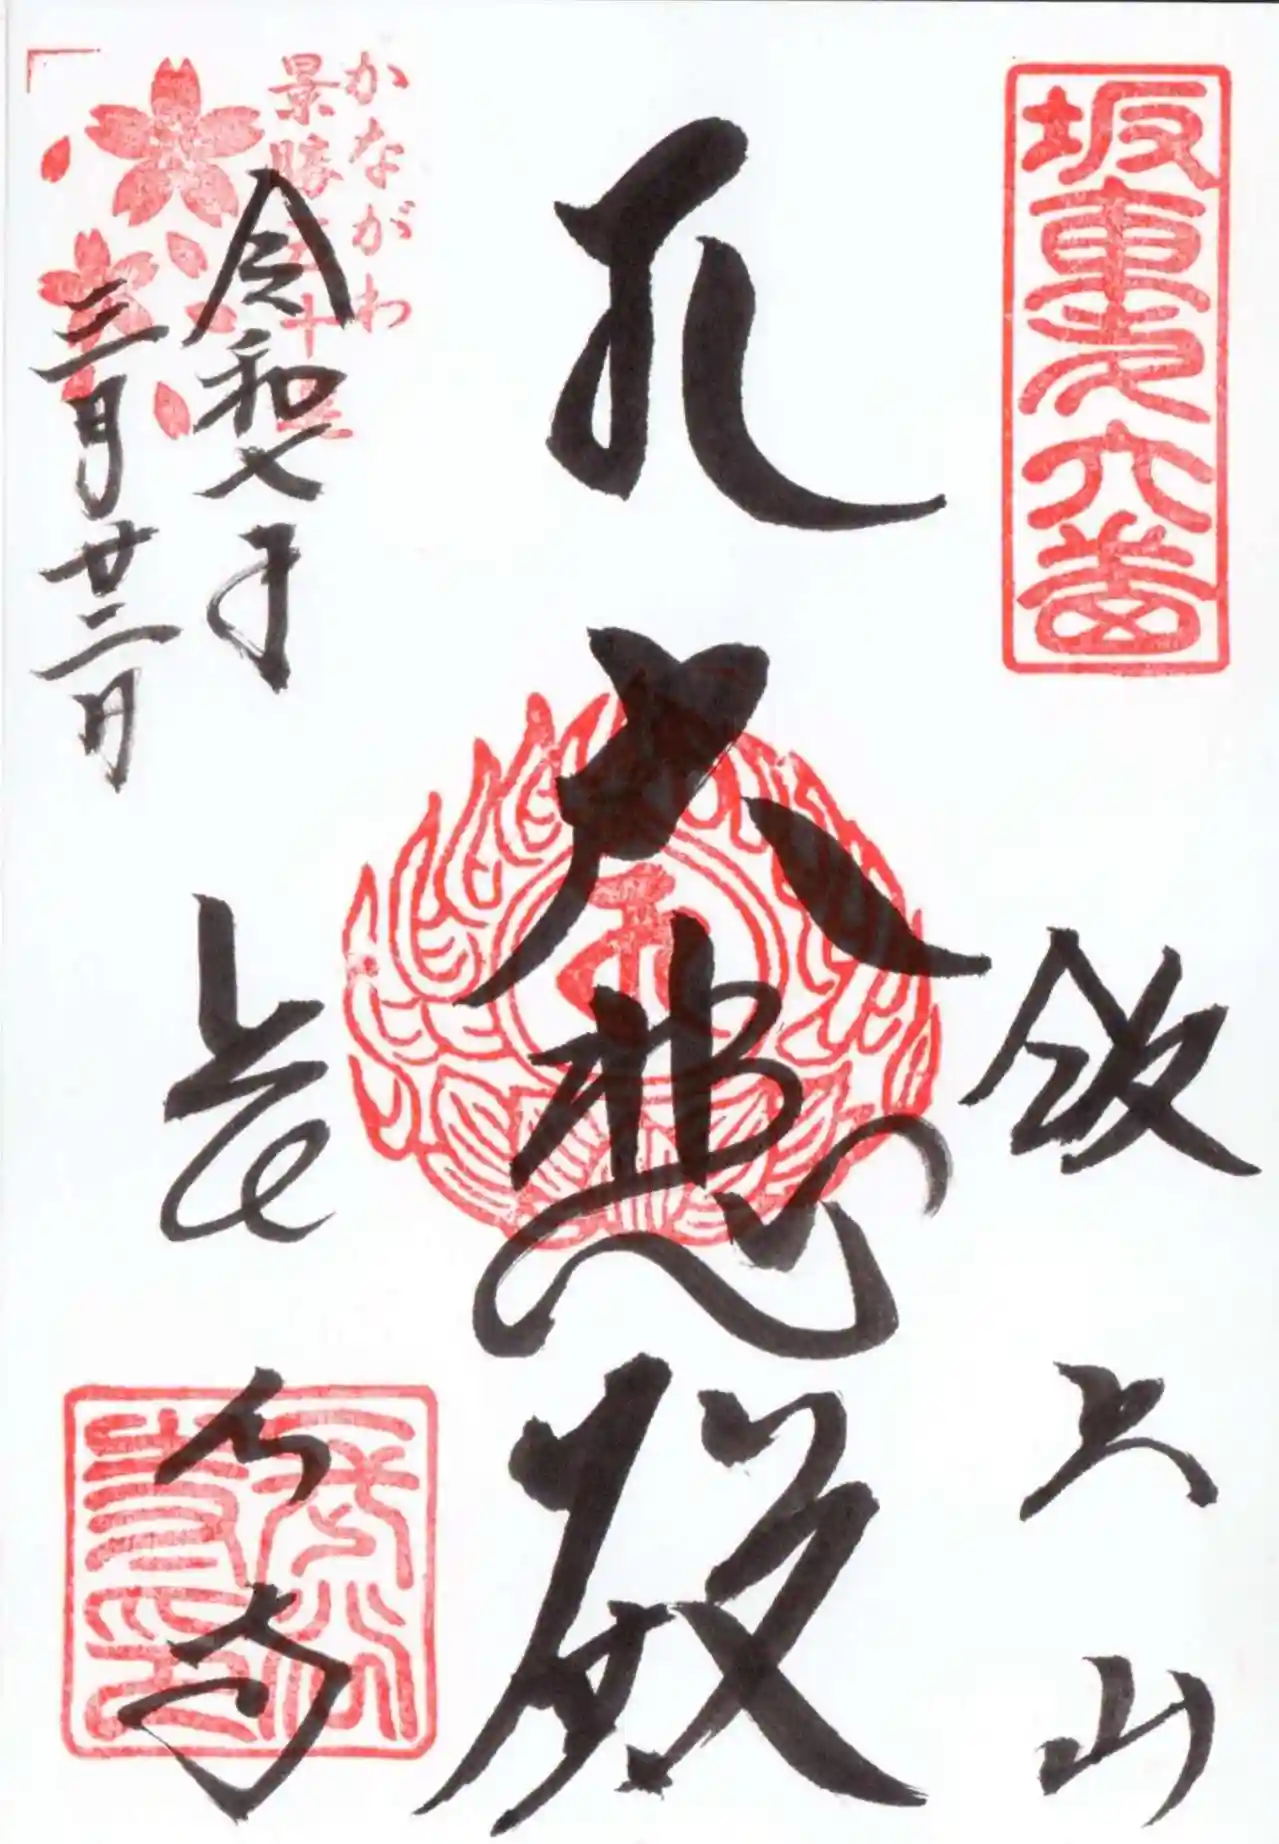 坂東㐧六番
飯上山
大悲殿
かながわ
景勝五十選
令和七年
三月廿二日
長谷寺